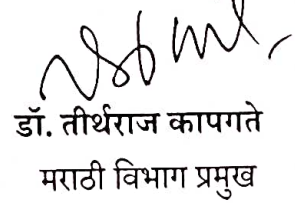 डॉ. तीर्थराज कापगते
मराठी विभाग प्रमुख